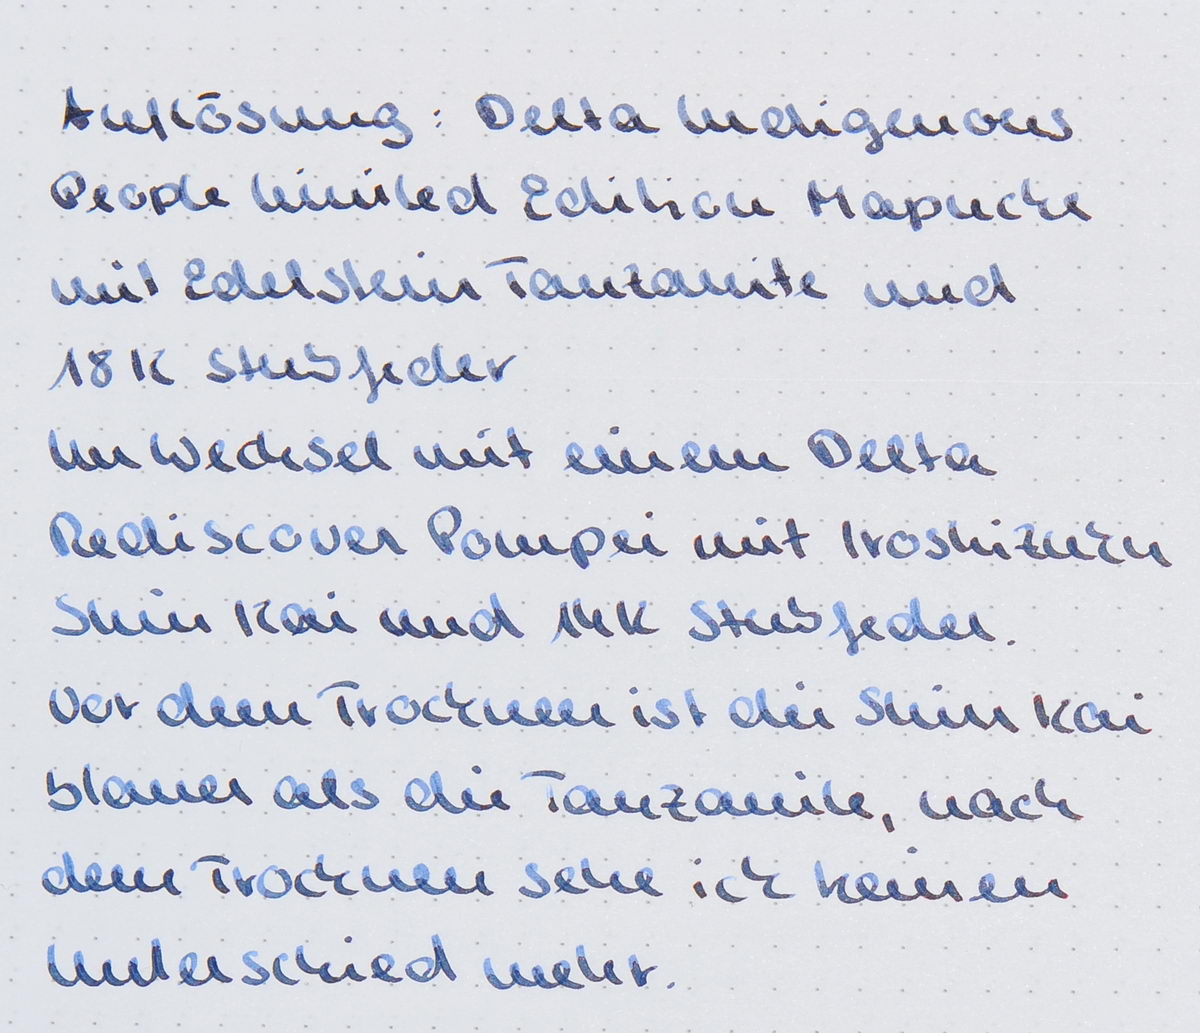 Auflösung: Delta Indigenous
People Limited Edition Mapuche
mit Edelstein Tanzanite und
18K Stubfeder
Im Wechsel mit einem Delta
Rediscover Pompei mit Iroshizuku
Shin Kai und 14K Stubfeder.
Vor dem Trocknen ist die Shin Kai
blauer als die Tanzanite, nach
dem Trocknen sehe ich keinen
Unterschied mehr.